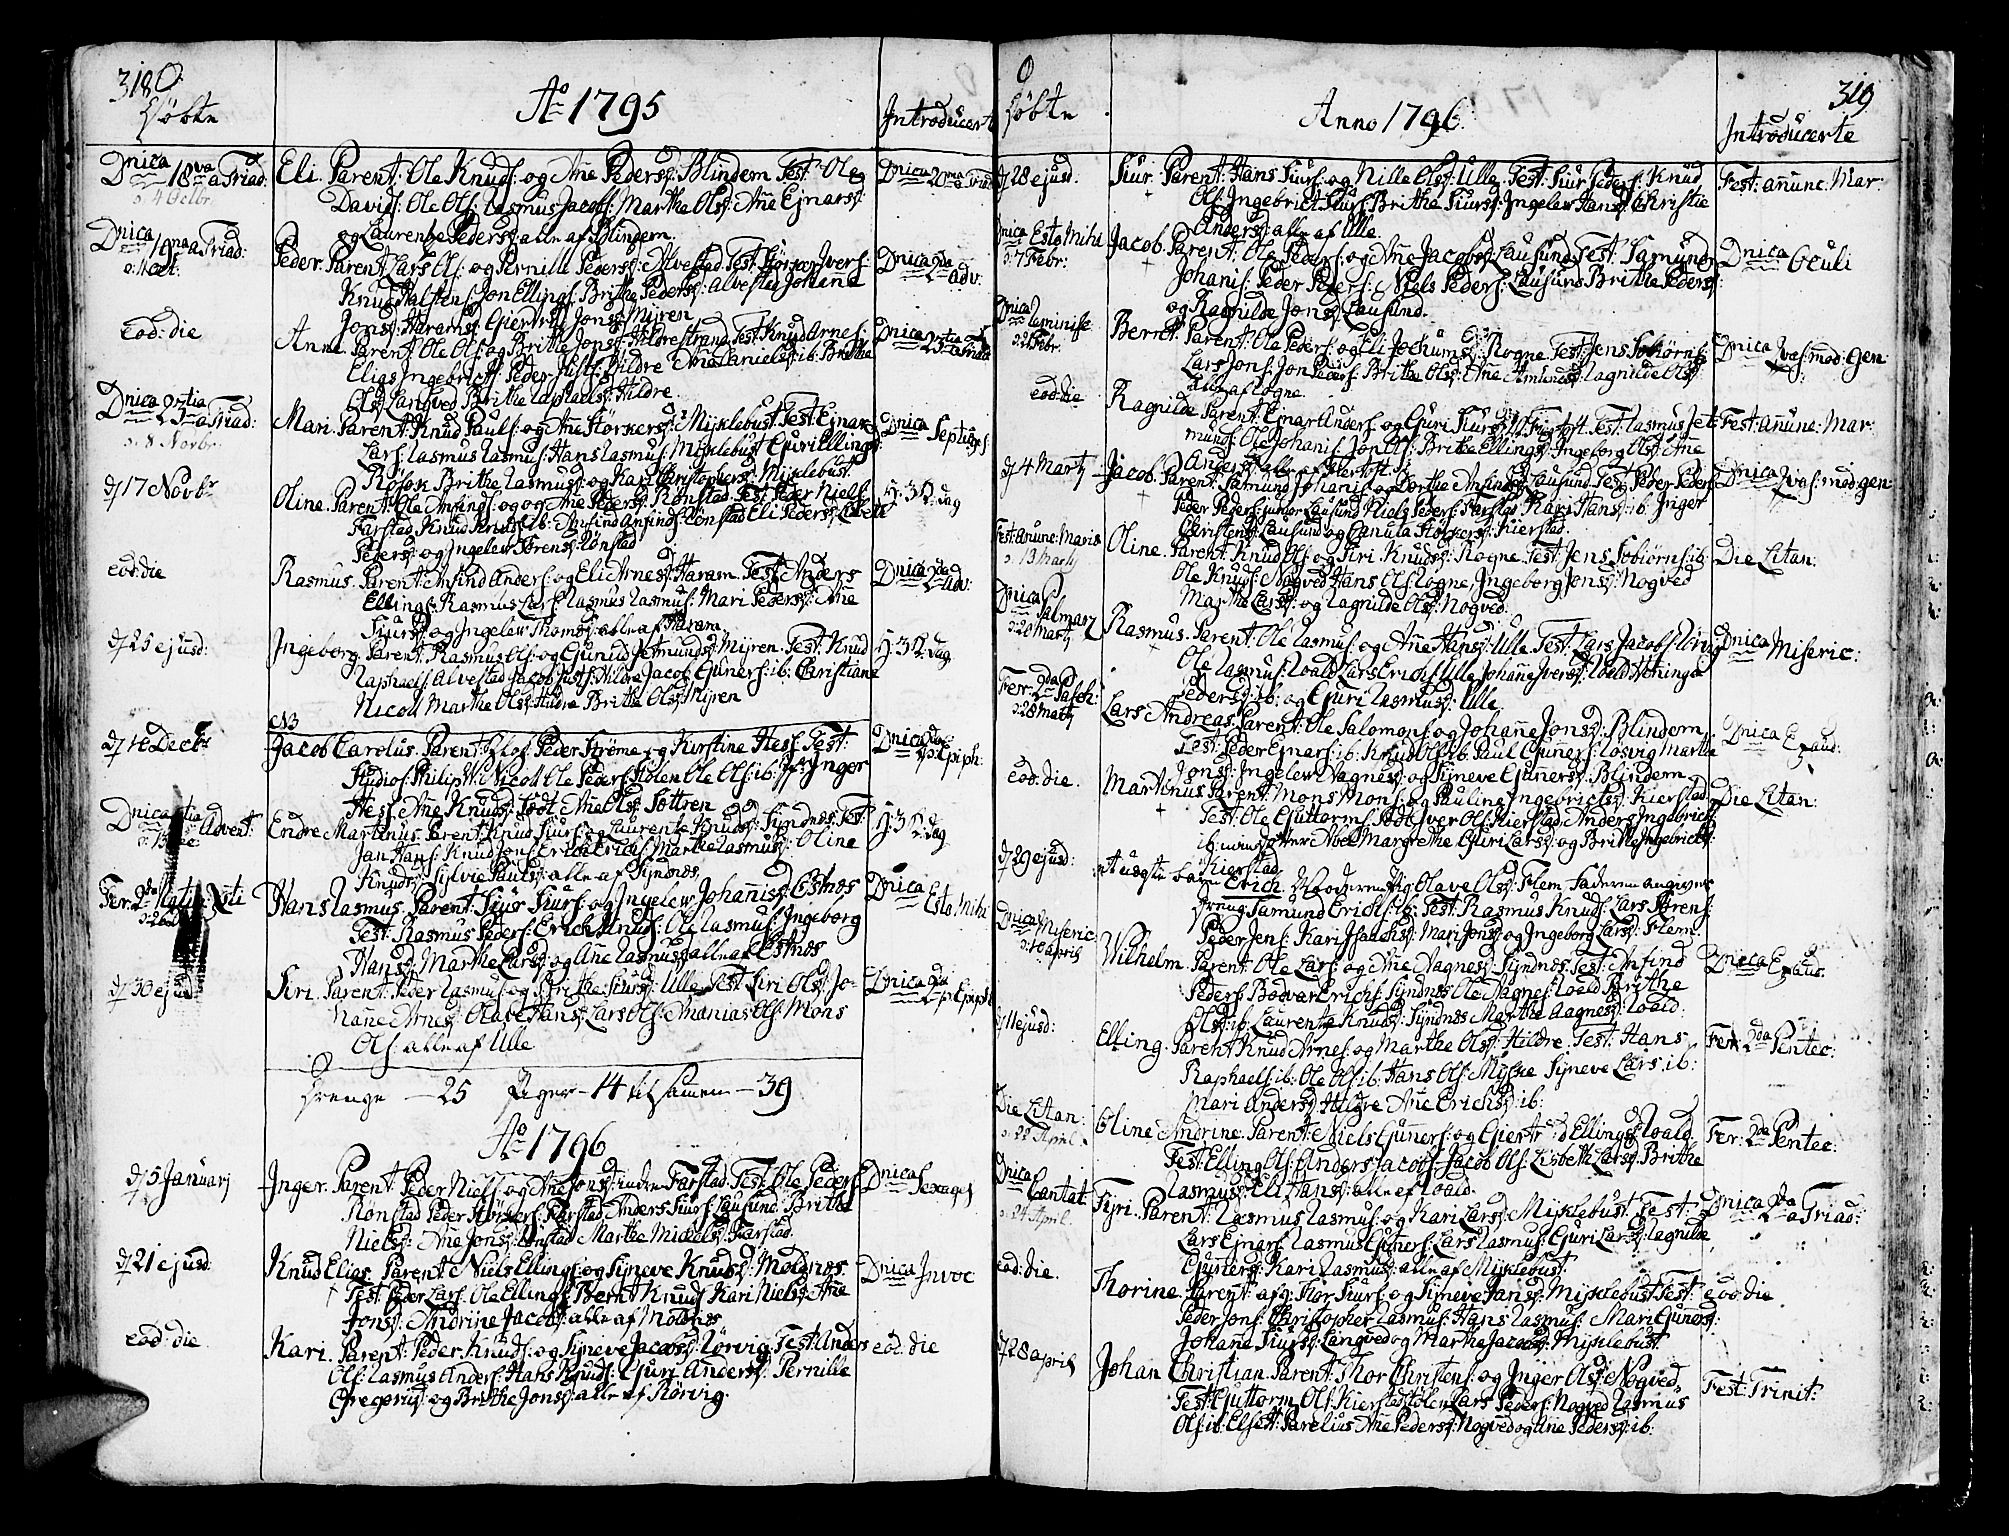 318
Døbte
Ao 1795
Introducerte
Dnica 18va a Triad:
o: 4 Octbr.
Eli. Parent: Ole Knuds: og Ane Pedersd: Blindem Test: Ole
Davids: Ole Ols: Rasmus Jacobs: Marthe Olsd: Ane Ejnarsd:
og Laurentze Pedersd: alle af Blindem.
Dnica 20ma a Triad
Dnica 19na a Triad:
o: 11 Oct:
Peder. Parent: Lars Ols: og Pernille Pedersd: Alvestad Test: Ivers:
Knud Halstens: Jon Ellings: Brithe Pedersd: Alvestad Johane
Jonsd: Haramsd: Giertrud Jonsd: Myren
Dnica 2da adv:
eod: die
Anne. Parent: Ole Ols: og Brithe Jonsd: Hildrestrand Test: Knud Arnes:
Elias Ingebricts: Peder Justs: Hildre Ane Daniels: ib: Brithe
Olsd: Langved Brithe Raphaelsd: Hildre.
Dnica 23tia a Triad
Dnica 23tia a Triad:
o: 8 Novbr.
Mari. Parent: Knud Pauls: og Ane Størkersd: Myklebust Test: Ejnar
Lars: Rasmus Rasmus: Hans Rasmus: Myklebust Guri Ellingsd:
Røsok Brithe Rasmusd: og Kari Christophersd: Myklebust.
Dnica Septuages
d 17 Novbr
Oline. Parent: Ole Amfinds: og Ane Pedersd: Rønstad. Test: Peder Niels:
Farstad Knud Knuds: ib: Amfind Amfinds: Rønstad Eli Pedersd: Lisbeth
Pedersd: og Ingelew Sørensd: Rønstad
H: 3 K: dag
eod: die
Rasmus. Parent: Amfind Anders: og Eli Arnesd: Haram. Test: Anders
Ellings: Rasmus Lars: Rasmus Rasmus: Mari Pedersd: Ane
Siursd: og Ingelew Thomsd: alle af Haram.
Dnica 2da adv:
d 25 ejusd:
Ingeborg. Parent: Rasmus Ols: og Gunild Jetmundsd: Myren. Test: Knud
Raphaels: Alvestad Jacob Justs: Hildre Jacob Guners: ib: Christiane
Nicoll Marthe Olsd: Hildre Brithe Olsd: Myren
H: 3 K: dag
NB
d 4 Decbr
Jacob Carolus. Parent: Peder Strøme og Kirstine Hess. Test:
Studios: Philip W: Nicoll Ole Peders: Støten Ole Ols: ib: Inger
Hess. Ane Knudsd: Ane Olsd: Søttren
Dnica p: Epiph:
Dnica 3tia Advent:
Endre Martinus Parent: Knud Siurs: og Laurentze Knudsd: Synnes Test:
Jan Hans: Knud Jons: Erich Erichs: Marthe Rasmusd: Oline
Knudsd: Sylvie Paulsd: alle af Synnes.
H: 3 K: dag
Fer: 2da Natiu: Xsti
Hans Rasmus. Parent: Siur Siurs: og Ingelew Johanisd: Estnos
Test: Rasmus Peders: Erich Knuds: Ole Rasmus: Ingeborg
Hansd: Marthe Larsd: og Ane Rasmusd: alle af Estnos
Dnica Esto Mihi
d 30 ejusd
Siri. Parent: Peder Rasmus: og Brithe Siursd: Ulle Test: Siri Olsd: Jo-
hane Arnesd: Olave Hansd: Lars Ols: Ananias Ols: Mons
Ols: alle af Ulle
Dnica 2da p: Epiph
Drenge — 25 Piger — 14 tilsamen — 39
Ao 1796
d 5 Januarj
Inger. Parent: Peder Niels: og Ane Jonsd: indre Farstad. Test: Ole Peders:
Rønstad Peder Størkers: Farstad Anders Siurs: Lausund. Brithe
Nielsd: Ane Jonsd: Rønstad Marthe Michelsd: Farstad.
Dnica Sexages
d 21 ejusd:
Knud Elias. Parent: Niels Ellings: og Synneve Knudsd: Moldnes
Test: Peder Lars: Ole Ellings: Bernt Knuds: Kari Nielsd: Ane
Jonsd: Andrine Jacobsd: alle af Moldnes
Dnica Invoc
eod: die
Kari. Parent: Peder Knuds: og Synneve Jacobsd: Rørvig. Test: Anders
Ols: Rasmus Anders: Hans Knuds: Guri Andersd: Pernille
Gregorisd: og Brithe Jonsd: alle af Rørvig.
eod: die
319
Døbte
Anno 1796.
Introducerte
d 28 ejusd.
Siur. Parent: Hans Siurs: og Nille Olsd: Ulle. Test: Siur Peders: Knud
Ols: Ingebrict Siurs: Brithe Siursd: Ingelew Hansd: Christie
Andersd: alle af Ulle.
Fest: anunc: Mar:
Dnica Esto Mihi
o: 7 Febr:
Jacob. Parent: Ole Peders: og Ane Jacobsd: Lausund. Test: Samund
Johanis: Peder Peders: Niels Peders: Lausund Brithe Pedersd:
og Ragnilde Jonsd: Lausund.
Dnica Oculi
Dnica Reminisc:
Berret. Parent: Ole Peders: og Eli Jochumsd: Rogne. Test: Jens Sobiørns:
Lars Jons: Jon Peders: Brithe Olsd: Ane Amundsd: Ragnilde Olsd:
alle af Rogne.
Dnica Qvasimod: gen
eod: die
Ragnilde Parent: Ejnar Anders: og Guri Siursd: Fiertoft. Test: Rasmus Jet-
munds: Ole Johanis: Jon Ols: Brithe Ellingsd: Ingeborg Olsd: Ane
Andersd: alle af Fiertoft.
Fest: anunc: Mar:
d 4 Martj
Jacob. Parent: Samund Johanis: og Dorthe Amfindsd: Lausund. Test: Peder Peders:
Peder Peders: junior Lausund Niels Peders: Farstad Kari Hansd: ib: Inger
Christensd: Lausund og Canuta Størkersd: Kierstad.
Dnica Qvas: modgen
Fest: anunc: Mariæ
o: 13 Martj
Oline. Parent: Knud Ols: og Siri Knudsd: Rogne. Test: Jens Sobiørns: ib:
Ole Knuds: Nogved Hans Ols: Rogne, Ingeborg Jonsd: Nogved
Marthe Larsd: og Ragnilde Olsd: Nogved.
Die Litan:
Dnica Palmar
o: 20 Martj
Rasmus. Parent: Ole Rasmus: og Ane Hansd: Ulle. Test: Lars Jacobs: Rørvig
Ole Rasmus: Roald Lars Erichs: Ulle Johane Iversd: Roald Heninga
Pedersd: ib: og Guri Rasmusd: Ulle.
Dnica Miseric:
Fer: 2da Pasch:
o: 28 Martj
Lars Andreas. Parent: Ole Salomons: og Johane Jonsd: Blindem.
Test: Peder Ejnars: ib: Knud Ols: ib: Paul Gunners: Røsvig Marthe
Jonsd: Ingelew Vagnesd: og Synneve Gunersd: Blindem.
Dnica Exaud:
eod: die
Martinus. Parent: Mons Mons: og Pauline Ingebrictsd: Kierstad
Test: Ole Guttorms: Iver Ols: Kierstad Anders Ingebricts:
ib: Abel Margrethe Guri Larsd: og Brithe Ingebrictsd:
Kierstad
Die Litan:
d 29 ejusd:
et uægte barn Erich. Moderen Pig: Olave Olsd: Flem. Faderen angiven
dreng Samund Erichs: ib: Test: Rasmus Knuds: Lars Sørens:
Peder Jens: Kari Isaachsd: Mari Jonsd: og Ingeborg Larsd: Flem
Dnica Miseric:
o: 10 april
Wilhelm. Parent: Ole Lars: og Ane Vagnesd: Synnes. Test: Amfind
Peders: Bodvar Erichs: Synnes Ole Vagnes: Roald Brithe
Olsd: ib: Laurentze Knudsd: Synnes Marthe Aagnesd: Roald:
Dnica Exaud:
d 11 ejusd:
Elling. Parent: Knud Arnes: og Marthe Olsd: Hildre. Test: Hans
Raphaels: ib: Ole Ols: ib: Hans Ols: Myhre Synneve Larsd: ib:
Mari Andersd: Hildre Ane Erichsd: ib:
Fer: 2da Pentec:
Die Litan:
o: 22 April
Oline Andrine. Parent: Niels Gunners: og Giertrud Ellingsd: Roald.
Test: Elling Ols: Anders Jacobs: Jacob Ols: Lisbeth Larsd: Brithe
Rasmusd: Eli Hansd: alle af Roald.
Fer: 2da Pentec:
Dnica Cantat:
o: 24 April.
Syri. Parent: Rasmus Rasmus: og Kari Larsd: Myklebust. Test:
Lars Ejnars: Rasmus Guners: Lars Rasmus: Guri Larsd: Ragnilde
Gunersd: Kari Rasmusd: alle af Myklebust.
Dnica 2da a Triad:
eod: die.
Thorine. Parent: Siurs: og Synneve Hansd: Myklebust. Test:
Peder Jons: Christopher Rasmus: Hans Rasmus: Mari Gunersd:
Johane Siursd: Langved og Marthe Jacobsd: Myklebust.
eod: die
d 28 april
Johan Christian. Parent: Thor Christens: og Inger Olsd: Nogved
Test: Guttorm Ols: Kierstadstølen Lars Peders: Nogved Rasmus
Ols: ib: Elsen Parelius Ane Pedersd: Nogved og Ane Pedersd: ib:
Fest: Trinit: